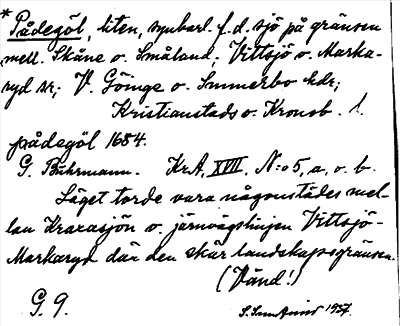 * Pådegöl, liten, synbarl. f. d. sjö på gränsen
mell. Skåne o. Småland, Vittsjö o. Marka-
ryd sr; V. Göinge o. Sunnerbo hdr;
Kristianstads o. Kronob. l.
pådegöl 1684.
G. Buhrmann. Kr.A. XVII. N:o 5, a, o. b.
Läget torde vara någonstädes mel-
lan Kraxasjön o. järnvägslinjen Vittsjö-
Markaryd där den skär landskapsgränsen.
(Vänd!)
G. 9.
1937.